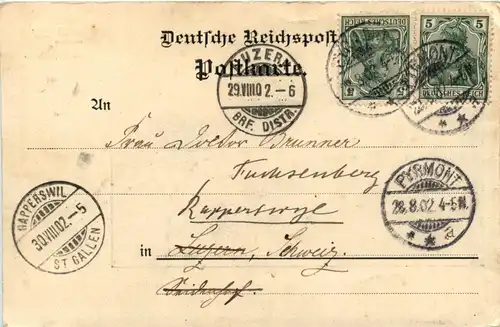 Deutsche Reichspost
Postkarte.
5 5
DEUTSCHES REICH DEUTSCHES REICH
LUZERN
29.VIII.02.-6
BRF. DISTR.
PYRMONT
An
Frau Doctor Brunner
Fuchsenberg
Rapperswyl
in Luzern, Schweiz.
PYRMONT
28.8.02 4-5N.
* * a
RAPPERSWIL
30.VIII.02.-5
ST. GALLEN